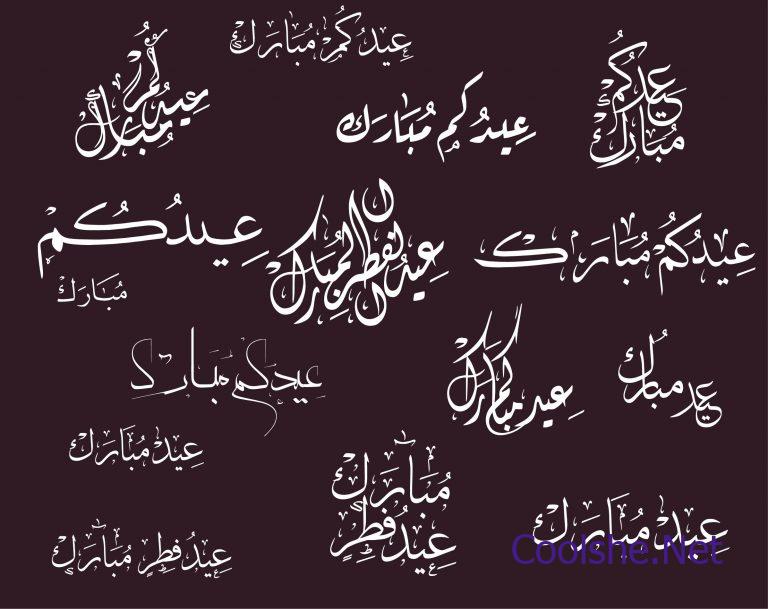 عِيدُكُمْ مُبَارَك
عِيدُكُمْ
مُبَارَك
عِيدُكُم مُبَارَك
عِيدُكُمْ
مُبَارَك
عِيدُكُمْ
مُبَارَكْ
عِيدُ الفِطْرِ المُبَارَك
عِيدُكُمْ مُبَارَك
عيدكم مبارك
عِيد مبارك
عيد مبارك
عِيدْ مُبَارَكْ
مُبَارَكْ
عِيدُ فِطْرٍ
عِيدُ فِطْرٍ مُبَارَكْ
عِيدْ مُبَارَكْ
Coolshe.Net